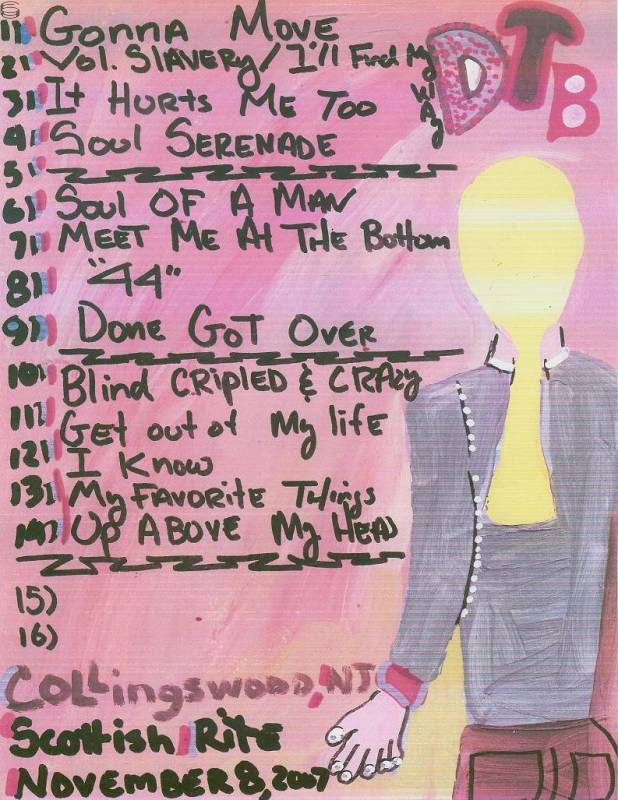 DTB
1) Gonna Move
2) Vol. Slavery / I'll Find My Way
3) It Hurts Me Too
4) Soul Serenade
5)
6) Soul Of A Man
7) Meet Me At The Bottom
8) "44"
9) Done Got Over
10) Blind Cripled & Crazy
11) Get out of My life
12) I Know
13) My Favorite Things
14) Up Above My Head
15)
16)
Collingswood, NJ
Scottish Rite
November 8, 2007